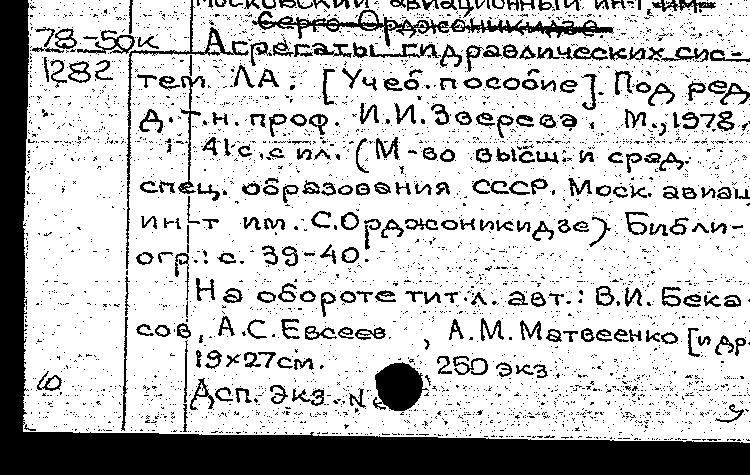 Московский авиационный ин-т, им.
Серго Орджоникидзе
78-50к Агрегаты гидравлических сис-
1282 тем ЛА. [Учеб. пособие]. Под ред
д.т.н. проф. И.И.Зверева. М., 1978.
41с. с ил. (М-во высш. и сред.
спец. образования СССР. Моск. авиац
ин-т им. С.Орджоникидзе). Библи-
огр.: с. 39-40.
На обороте тит.л. авт.: В.И. Бека
сов, А.С.Евсеев, А.М.Матвеенко [и др.
19×27см. 250 экз.
Дсп. Экз. №